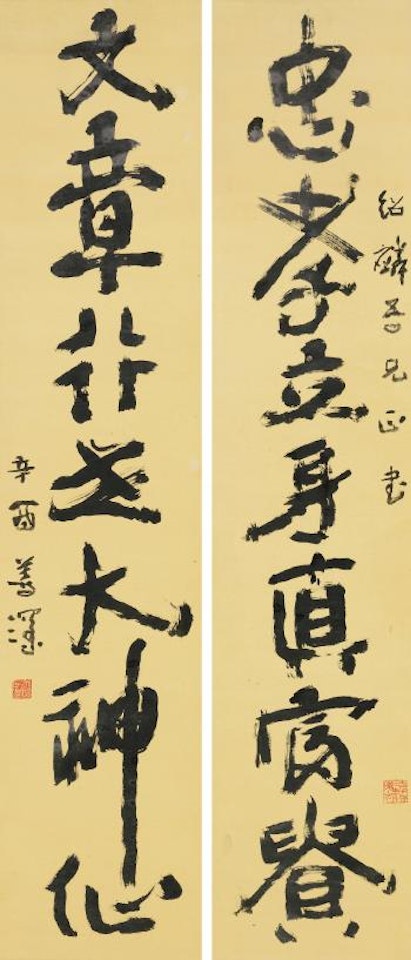 忠孝立身真富貴
紹麟吾兄正書
文章行世大神仙
辛酉